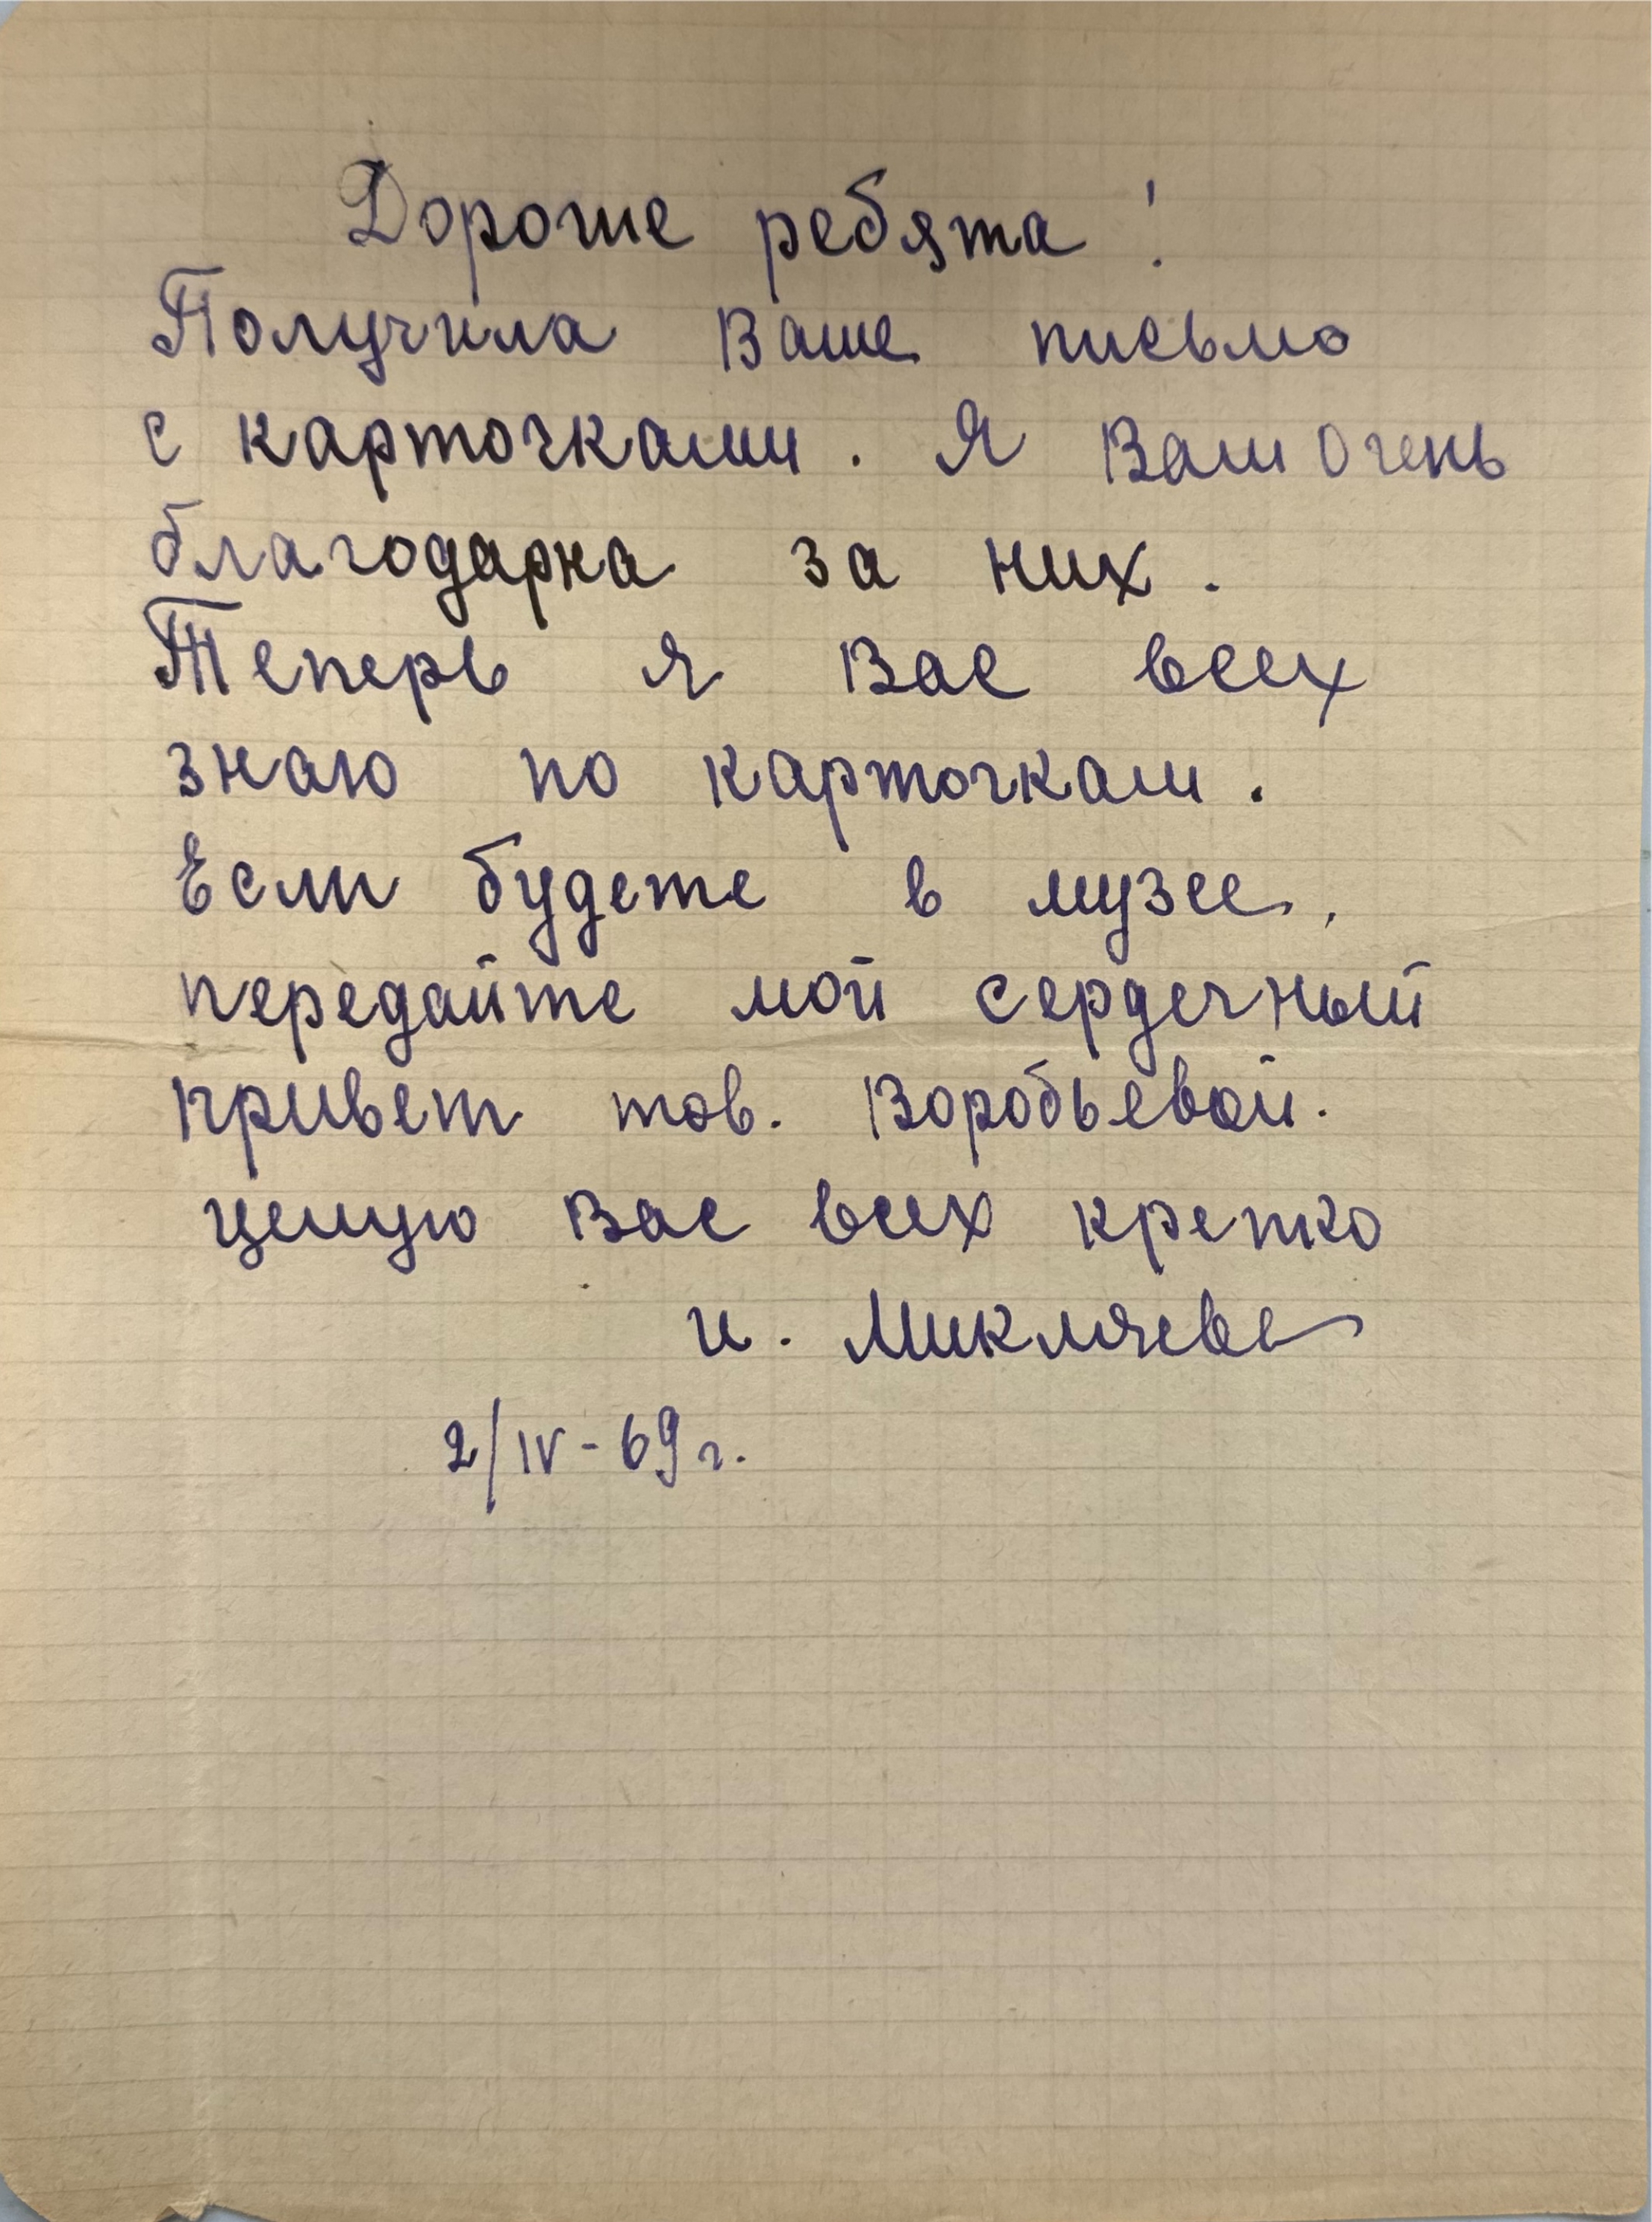 Дорогие ребята!
Получила Ваше письмо
с карточками. Я Вам очень
благодарна за них.
Теперь я Вас всех
знаю по карточкам.
Если будете в музее,
передайте мой сердечный
привет тов. Воробьевой.
целую Вас всех крепко
и. Микляева
2/IV-69г.